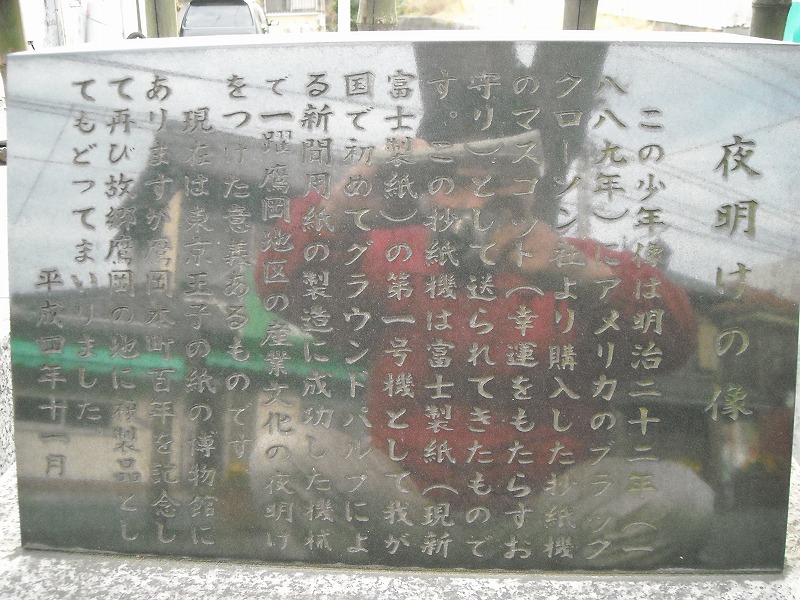 夜明けの像
この少年像は明治二十二年（一
八八九年）にアメリカのブラック
クローソン社より購入した抄紙機
のマスコット（幸運をもたらすお
守り）として送られてきたもので
す。この抄紙機は富士製紙（現新
富士製紙）の第一号機として我が
国で初めてグラウンドパルプによ
る新聞用紙の製造に成功した機械
で一躍鷹岡地区の産業文化の夜明け
をつけた意義あるものです
現在は東京王子の紙の博物館に
ありますが鷹岡本町百年を記念し
て再び故郷鷹岡の地に複製品とし
てもどってまいりました
平成四年十一月